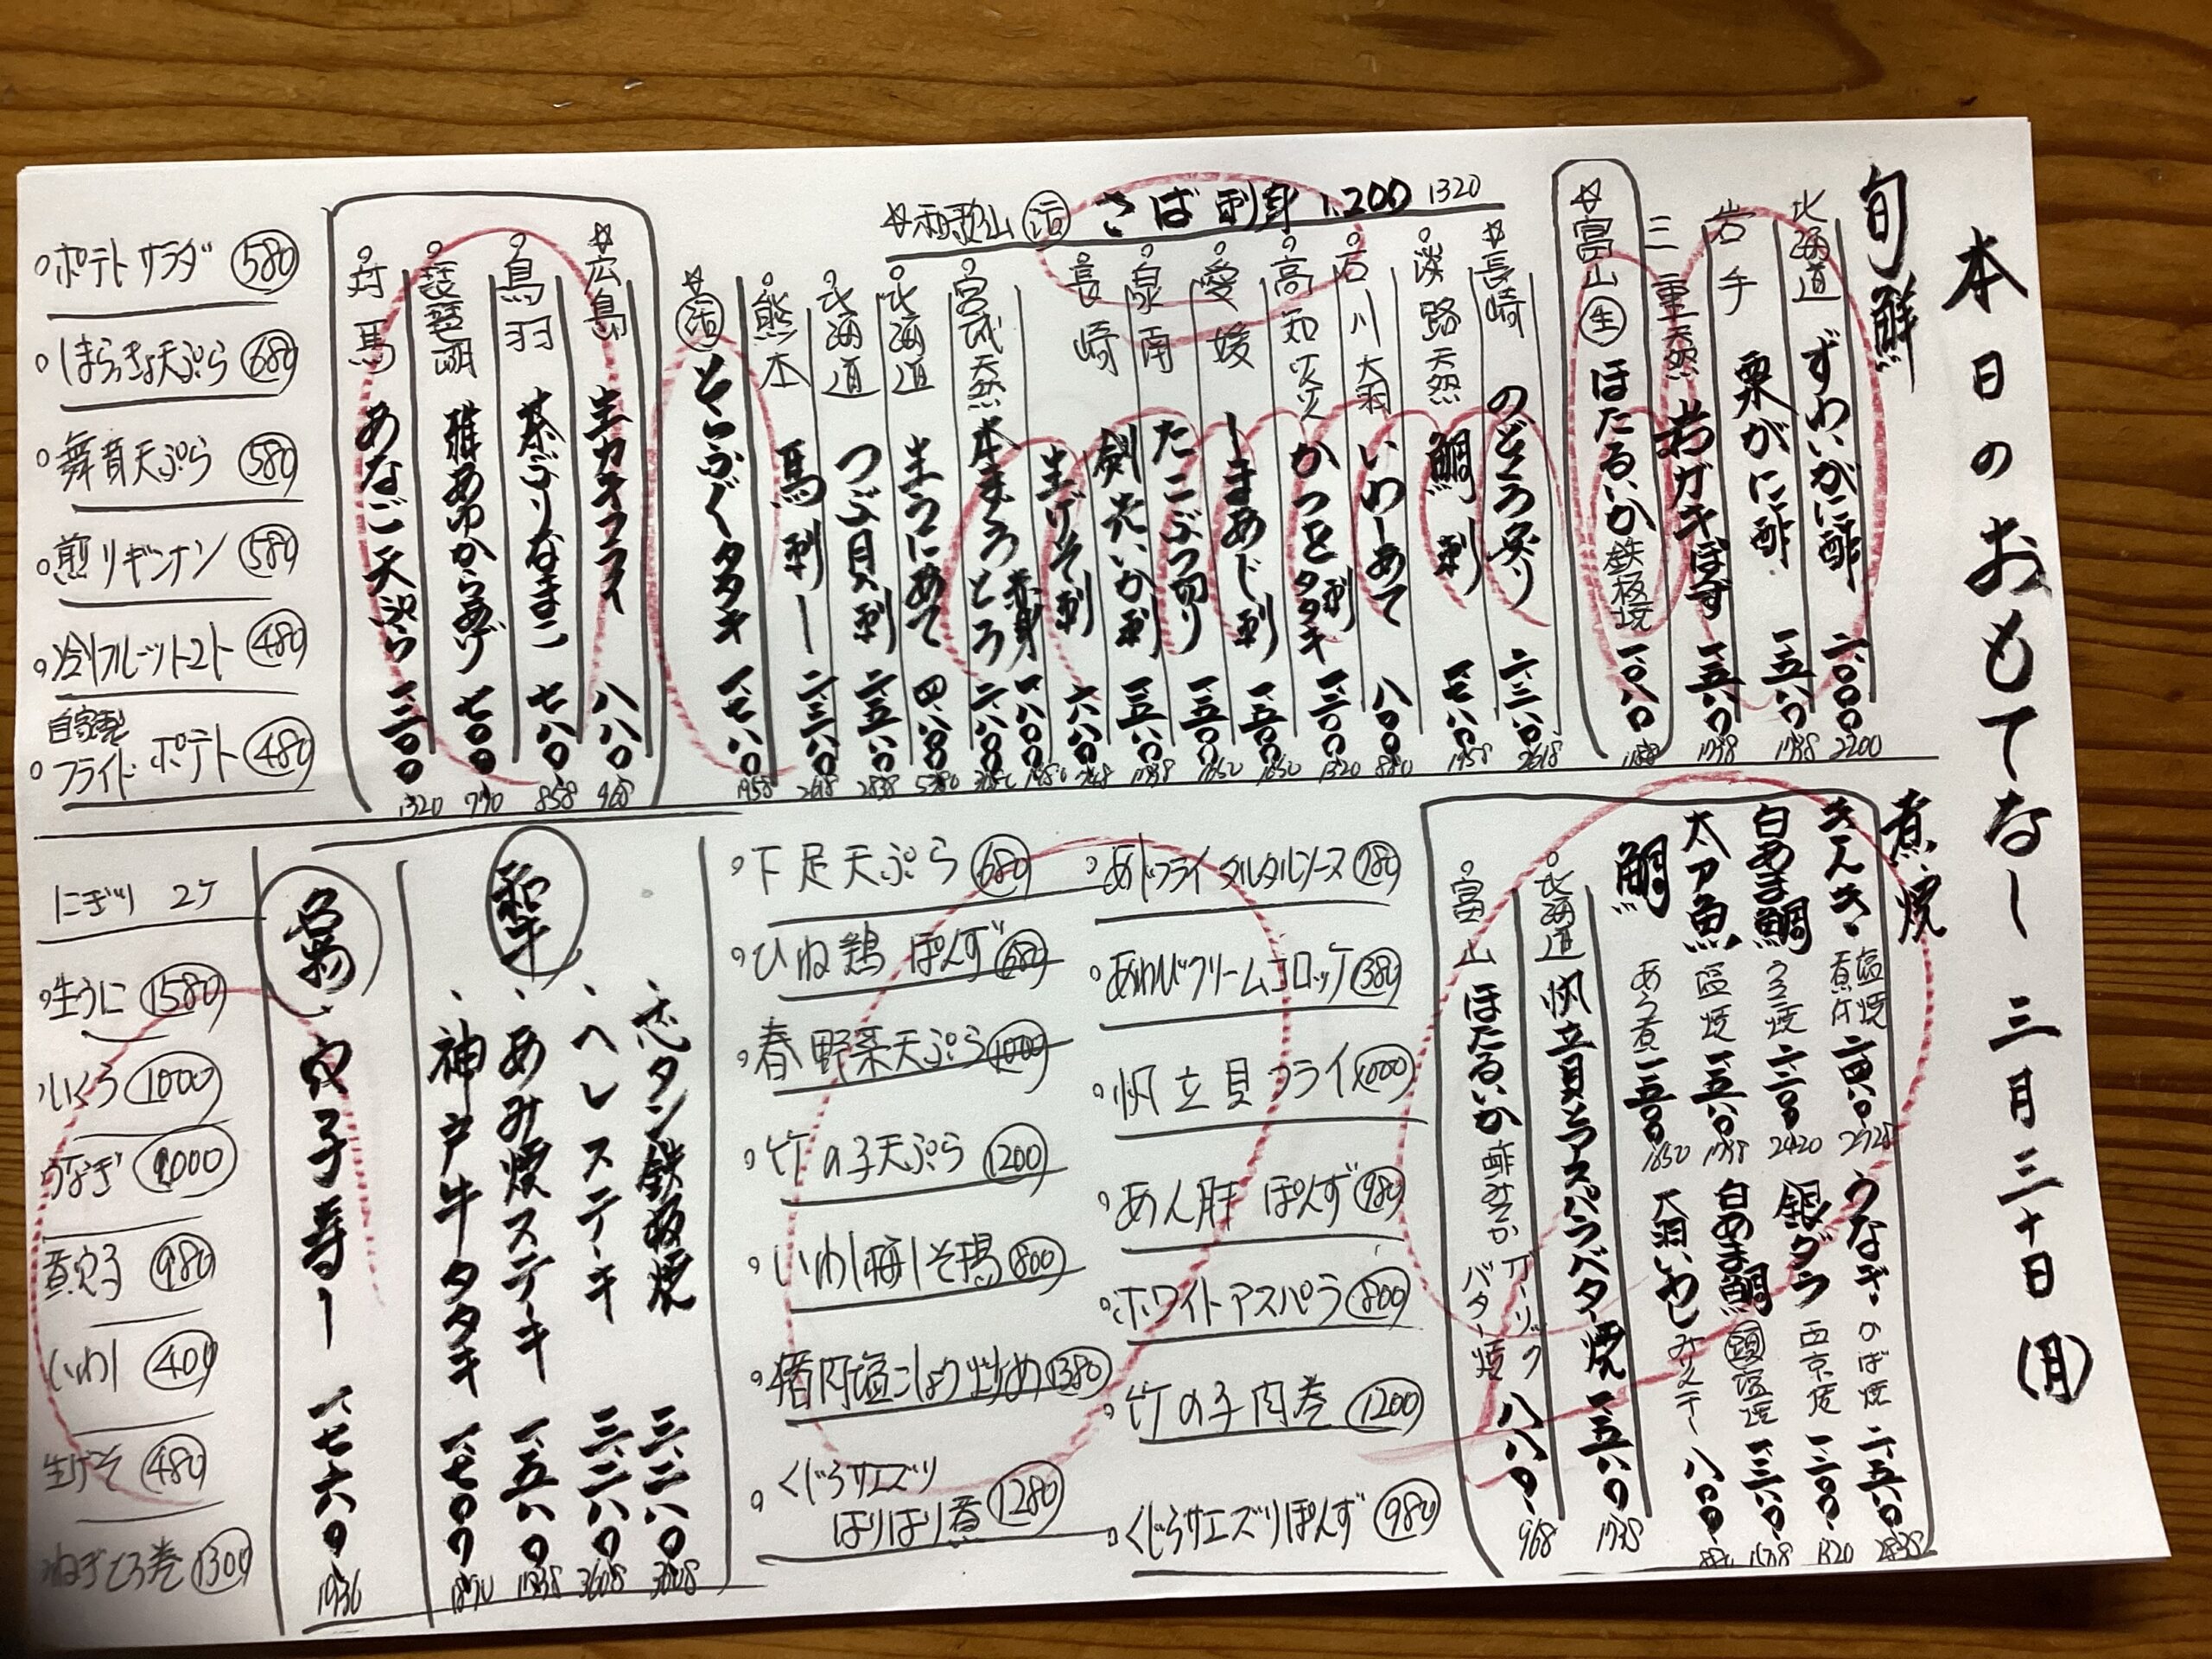 本日のおもてなし 三月三十日(月)
旬鮮
北海道 ずわいがに酢 二、000 2200
岩手 栗がに酢 一、五八0 1738
三重天然 岩ガキぽず 一、五八0 1738
☆富山 生 ほたるいか 鉄板焼 一、0八0 1188
☆和歌山 活 さば刺身 1.200 1320
☆長崎 のどぐろ炙り 二、三八0 2618
淡路天然 鯛刺 一、七八0 1958
石川大羽 いわしあて 八00 880
高知 かつを 刺 タタキ 一、二00 1320
愛媛 しまあじ刺 一、五00 1650
泉南 たこぶつ切り 一、五00 1650
長崎 剣先いか刺 一、五八0 1738
生げそ刺 六八0 748
宮城天然 本まぐろ 赤身 一、八00 1980
とろ 二、八00
北海道 生うにあて 四、八00 5280
北海道 つぶ貝刺 二、五八0 2838
熊本 馬刺し 二、三八0 2618
☆活 とらふぐタタキ 一、七八0 1958
☆広島 生カキフライ 八八0 968
鳥羽 茶ぶりなまこ 七八0 858
琵琶湖 稚あゆから揚げ 七00 770
対馬 あなご天ぷら 一、二00 1320
ポテトサラダ 580
しまらっきょ天ぷら 680
舞茸天ぷら 580
煎りギンナン 580
冷しフルーツトマト 480
自家製
フライドポテト 480
煮・焼
きんき 塩焼 煮付
白あま鯛 うろこ焼 二、二00 2420
太刀魚 塩焼 一、五八0 1738
鯛 あら煮 一、五00 1650
うなぎ のば焼 二、五八0 2838
銀ダラ 西京焼 一、二00 1320
白あま鯛 頭 塩焼
大羽いわし 八00 880
北海道 帆立貝とアスパラバター焼 一、五八0 1738
富山 ほたるいか ガーリック バター焼 八八0 968
あじフライタルタルソース 780
あわびクリームコロッケ 1380
帆立貝フライ 1000
あん肝ぽんず 980
ホワイトアスパラ 800
竹の子肉巻 1200
くじらサエズリぽんず 980
下足天ぷら 680
ひね鶏ぽんず 680
春野菜天ぷら 1000
竹の子天ぷら 1200
いわし梅しそ揚 800
猪肉塩こしょう炒め 1380
くじらサエズリ
はりはり煮 1280
和牛
芯タン鉄板焼 三、二八0 3608
ヘレステーキ 三、二八0 3608
あみ焼ステーキ 一、五八0 1738
神戸牛タタキ 一、七00 1870
名物 穴子寿し 一、七六0 1936
にぎり 2ケ
生うに 1580
いくら 1000
うなぎ 1000
煮穴子 980
いわし 400
生げそ 480
ねぎとろ巻 1300